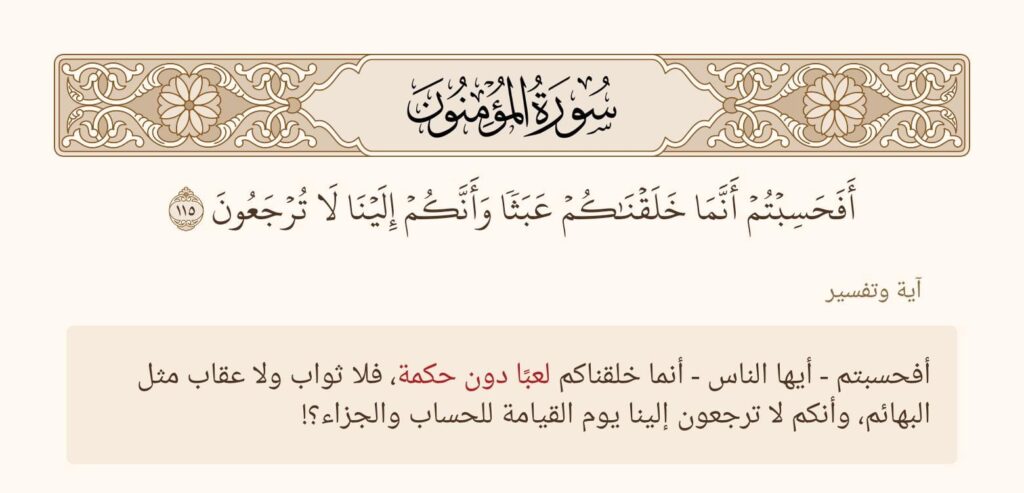 سُورَةُ المُؤۡمِنُونَ
أَفَحَسِبۡتُمۡ أَنَّمَا خَلَقۡنَٰكُمۡ عَبَثٗا وَأَنَّكُمۡ إِلَيۡنَا لَا تُرۡجَعُونَ ١١٥
آية وتفسير
أفحسبتم - أيها الناس - أنما خلقناكم لعبًا دون حكمة، فلا ثواب ولا عقاب مثل
البهائم، وأنكم لا ترجعون إلينا يوم القيامة للحساب والجزاء؟!